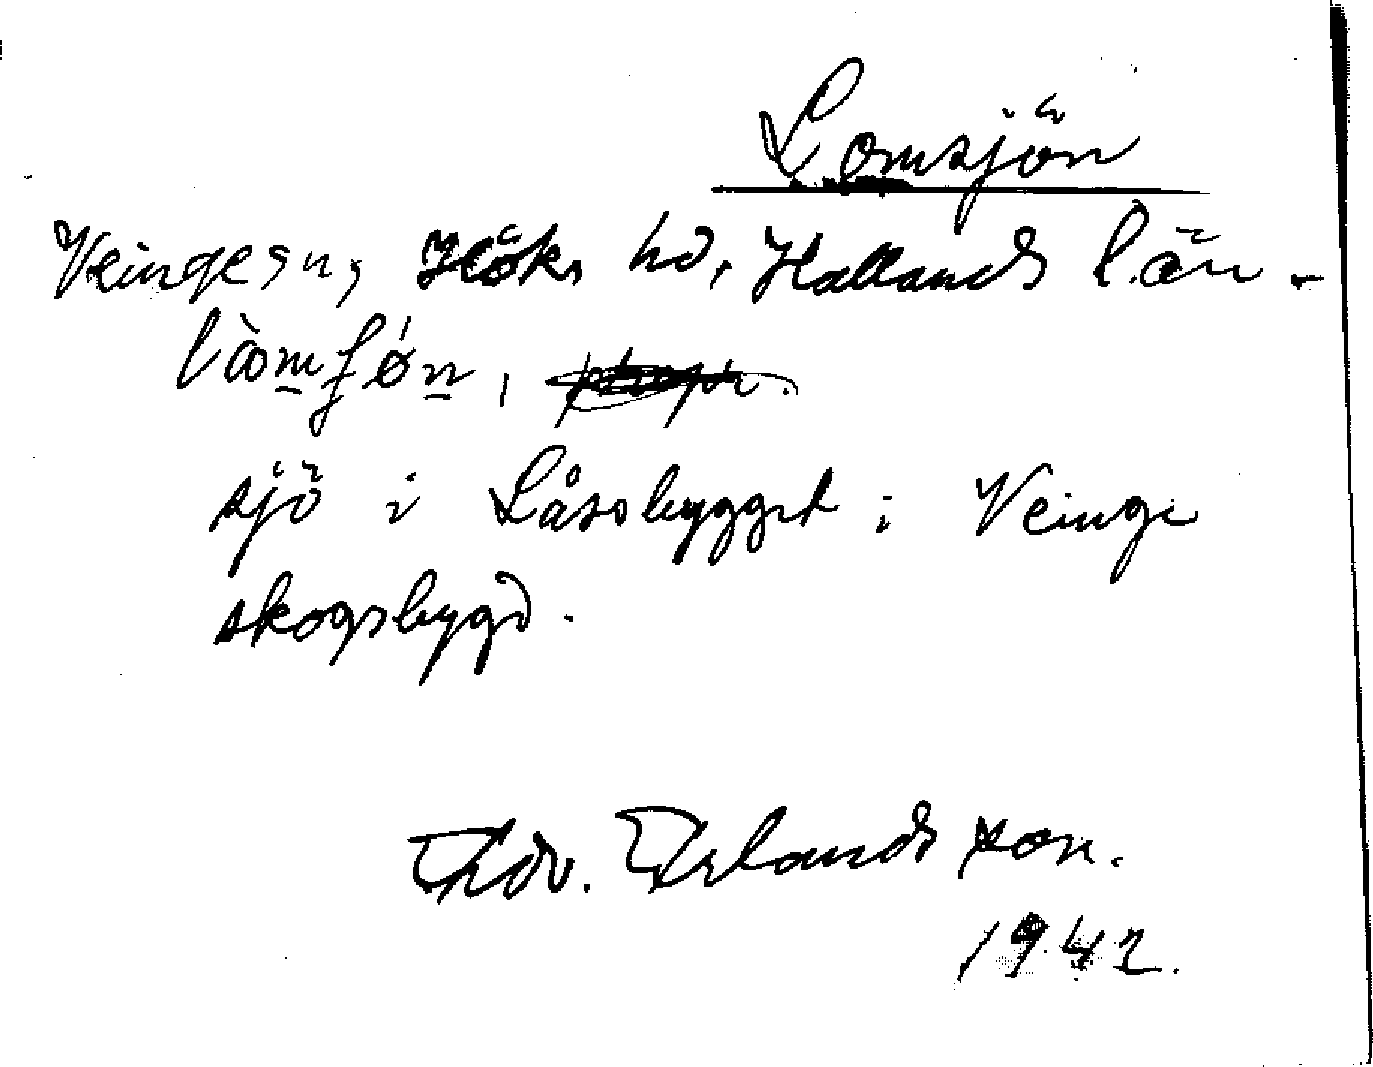 Lomsjön
Veinge sn, Höks hd, Hallands län.
sjö i Låssbygget i Veinge
skogsbygd.
Edv. Erlandsson.
1942.